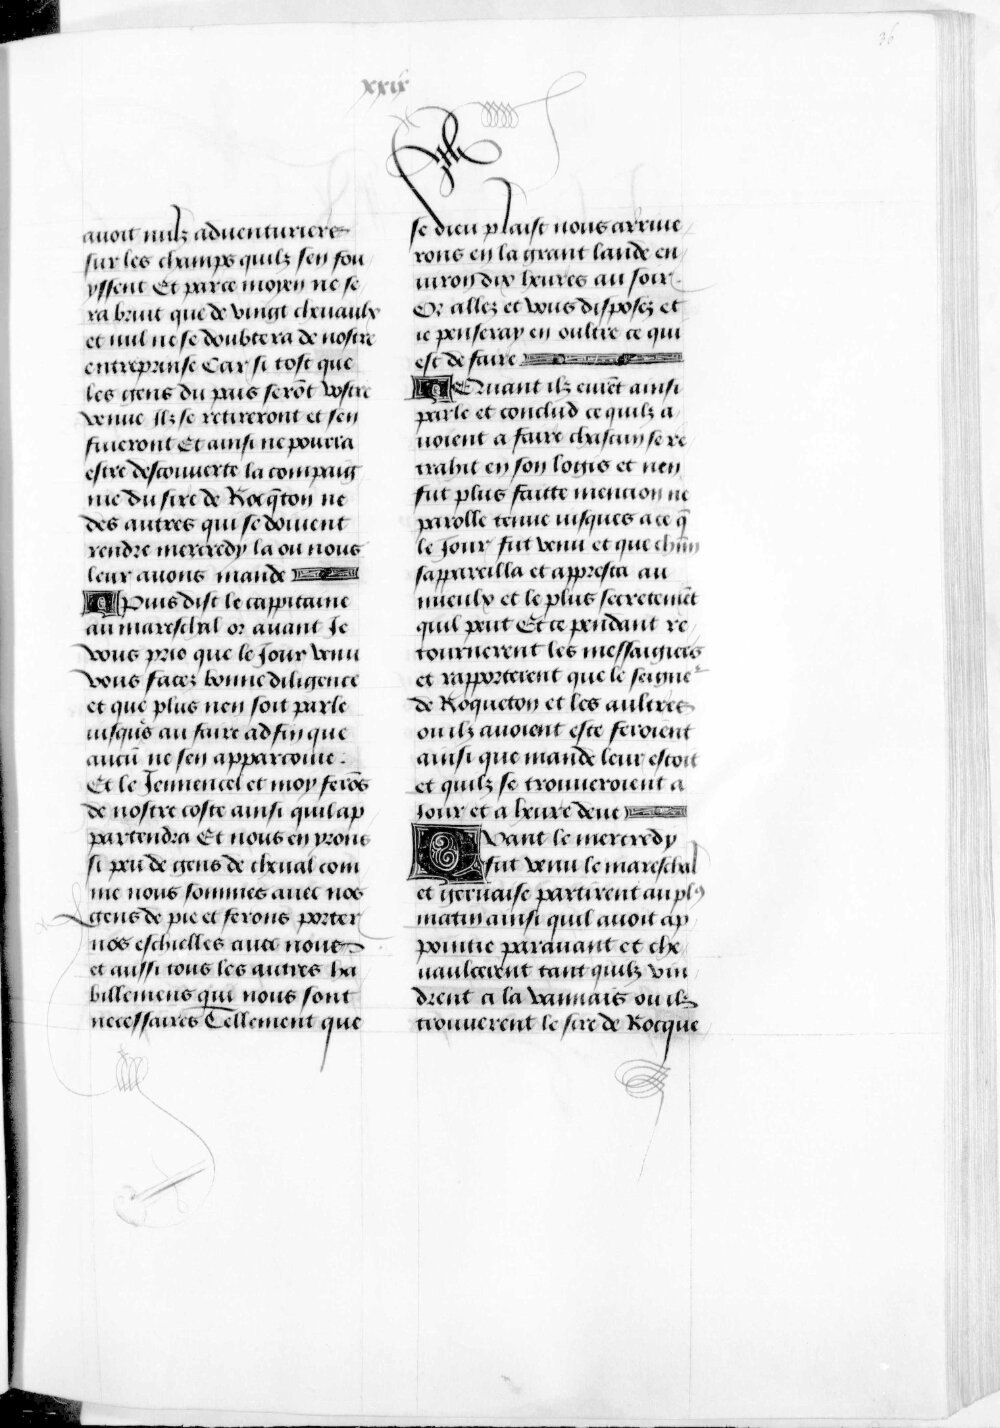 36
xxix
avoit nulz adventuriers
sur les champs quilz sen fou
yssent Et parce moyen ne se
ra bruit que de vingt chevaulx
et nul ne se doubtera de nostre
entreprinse Car si tost que
les gens du pais serōt vostre
venue Ilz se retireront et sen
fuieront Et ainsi ne pourra
estre descouverte la compaig
nie du sire de Rocq̄ton ne
des autres qui se doivent
rendre mercredy la ou nous
leur avons mande
Puis dist le cappitaine
au mareschal or avant Je
vous prie que le Jour venu
vous facez bonne diligence
et que plus nen soit parle
iusques au faire adfin que
aucū ne sen apparcoive .
Et le Jennencel et moy ferōs
de nostre coste ainsi quil ap
partendra Et nous en yrons
si peu de gens de cheval com
me nous sommes avec nos
gens de pie et ferons porter
nos eschielles avec nous
et aussi tous les autres ha
billemens qui nous sont
necessaires Tellement que
se dieu plaist nous arrive
rons en la grant lande en
viron dix heures au soir
Or allez et vous disposez et
ie penseray en oultre ce qui
est de faire
Quant ilz eurēt ainsi
parle et conclud ce quilz a
voient a faire chascun se re
trahit en son logis et nen
fut plus faitte mencion ne
parolle tenue iusques a ce q̄
le Jour fut venu et que chūn
sappareilla et appresta au
mieulx et le plus secretemēt
quil peut Et ce pendant re
tournerent les messaigiers
et rapporterent que le seigneʳ
de Roqueton et les aultres
ou ilz avoient este feroient
ainsi que mande leur estoit
et quilz se trouveroient a
Jour et a heure deue
Quant le mercredy
fut venu le mareschal
et gervaise partirent au plꝰ
matin ainsi quil avoit ap
pointie paravant et che
vaulcerent tant quilz vin
drent a la vannais ou ilz
trouverent le sire de Rocque